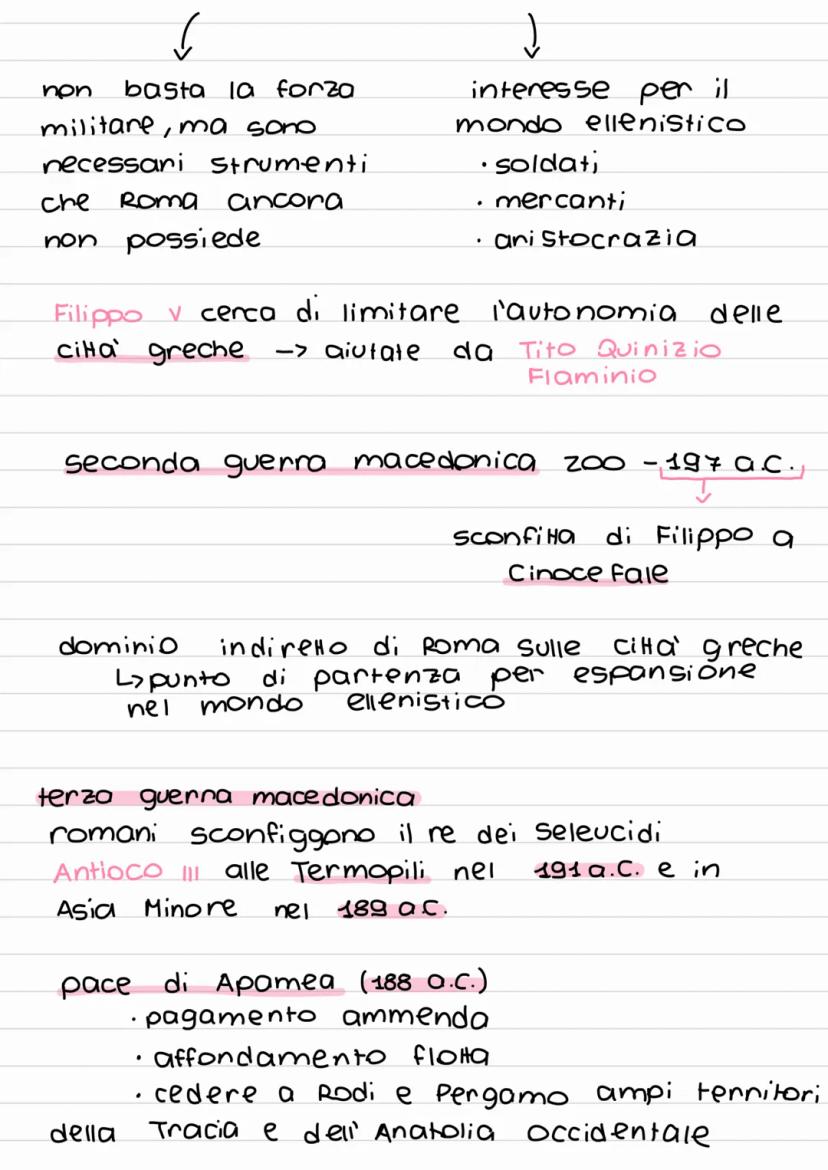 non basta la forza
militare, ma sono
necessari strumenti
che Roma ancora
non possiede
interesse per il
mondo ellenistico
· soldati
· mercanti
· aristocrazia
Filippo V cerca di limitare l'autonomia delle
città greche -> aiutate da Tito Quinizio
Flaminio
seconda guerra macedonica 200 - 197 a.C.
sconfitta di Filippo a
Cinocefale
dominio indiretto di Roma sulle città greche
↳ punto di partenza per espansione
nel mondo ellenistico
terza guerra macedonica
romani sconfiggono il re dei Seleucidi
Antioco III alle Termopili nel 191 a.C. e in
Asia Minore nel 189 a.C.
pace di Apamea (188 a.C.)
· pagamento ammenda
· affondamento flotta
· cedere a Rodi e Pergamo ampi territori
della Tracia e dell'Anatolia occidentale